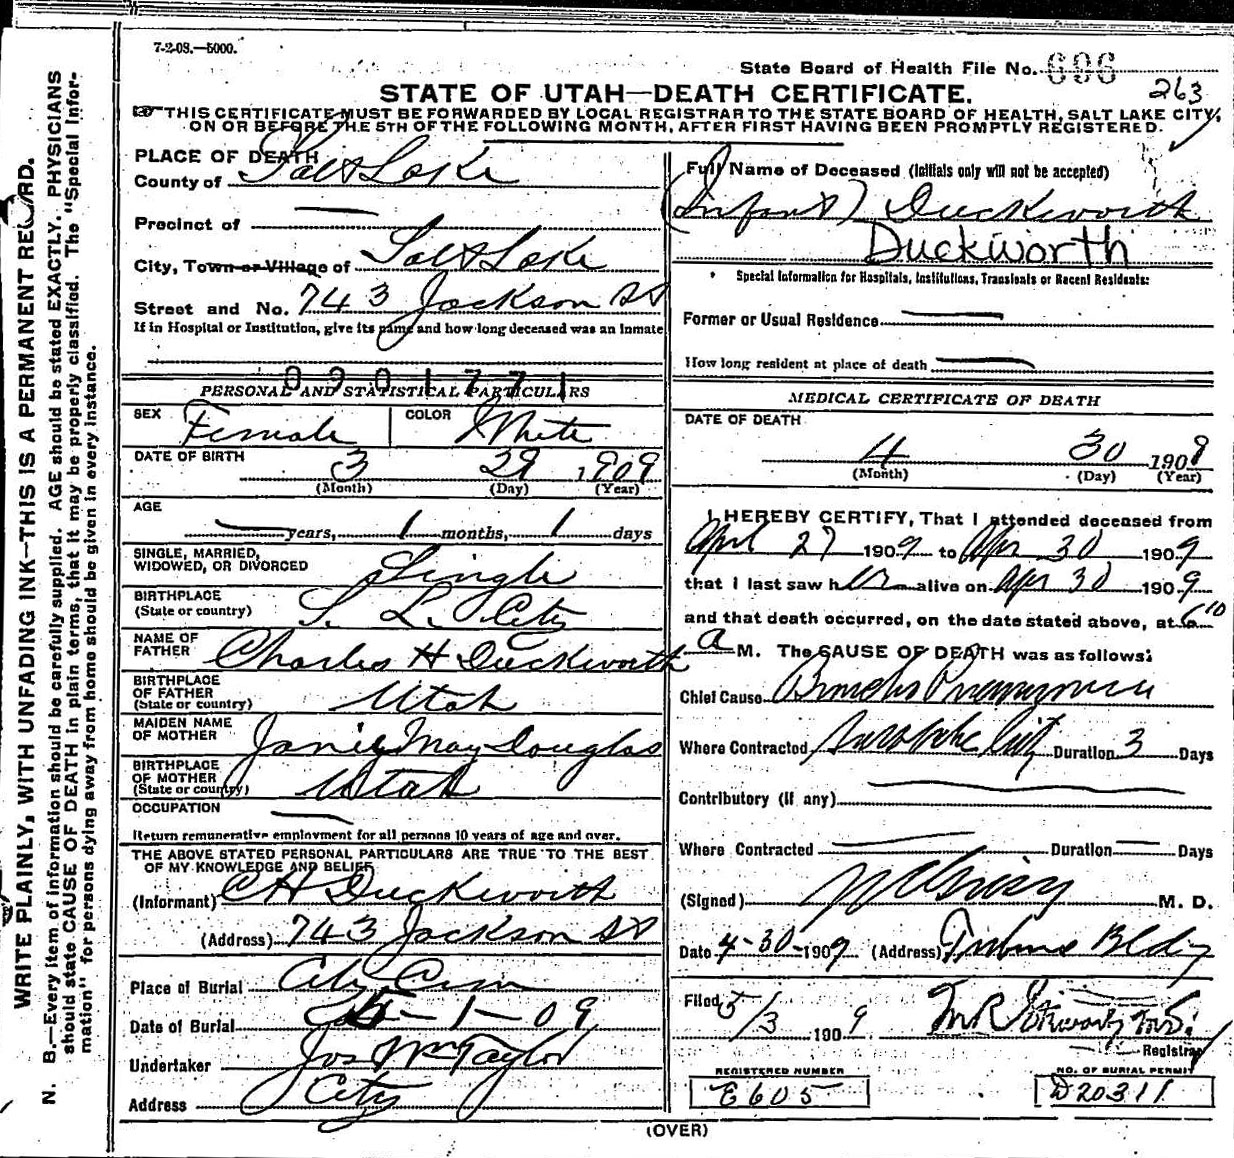 7-2-08.—5000.
State Board of Health File No. 696
263
STATE OF UTAH—DEATH CERTIFICATE.
THIS CERTIFICATE MUST BE FORWARDED BY LOCAL REGISTRAR TO THE STATE BOARD OF HEALTH, SALT LAKE CITY,
ON OR BEFORE THE 5TH OF THE FOLLOWING MONTH, AFTER FIRST HAVING BEEN PROMPTLY REGISTERED.
WRITE PLAINLY, WITH UNFADING INK—THIS IS A PERMANENT RECORD.
N. B.—Every item of information should be carefully supplied. AGE should be stated EXACTLY. PHYSICIANS
should state CAUSE OF DEATH in plain terms, that it may be properly classified. The "Special Infor-
mation" for persons dying away from home should be given in every instance.
PLACE OF DEATH
County of Salt Lake
Precinct of —
City, Town or Village of Salt Lake
Street and No. 743 Jackson St
If in Hospital or Institution, give its name and how long deceased was an inmate
0901771
PERSONAL AND STATISTICAL PARTICULARS
SEX Female COLOR White
DATE OF BIRTH 3 29 1909
(Month) (Day) (Year)
AGE — years, 1 months, 1 days
SINGLE, MARRIED,
WIDOWED, OR DIVORCED Single
BIRTHPLACE
(State or country) S. L. City
NAME OF
FATHER Charles H Duckworth
BIRTHPLACE
OF FATHER
(State or country) Utah
MAIDEN NAME
OF MOTHER Janie May Douglas
BIRTHPLACE
OF MOTHER
(State or country) Utah
OCCUPATION —
Return remunerative employment for all persons 10 years of age and over.
THE ABOVE STATED PERSONAL PARTICULARS ARE TRUE TO THE BEST
OF MY KNOWLEDGE AND BELIEF
(Informant) C H Duckworth
(Address) 743 Jackson St
Place of Burial City Cem
Date of Burial 5-1-09
Undertaker Jos Wm Taylor
Address City
Full Name of Deceased (Initials only will not be accepted)
(Infant) Duckworth
Duckworth
Special Information for Hospitals, Institutions, Transients or Recent Residents:
Former or Usual Residence —
How long resident at place of death —
MEDICAL CERTIFICATE OF DEATH
DATE OF DEATH
4 30 1909
(Month) (Day) (Year)
I HEREBY CERTIFY, That I attended deceased from
April 27 1909 to Apr 30 1909
that I last saw her alive on Apr 30 1909
and that death occurred, on the date stated above, at 6 10
a M. The CAUSE OF DEATH was as follows:
Chief Cause Broncho Pneumonia
Where Contracted Salt Lake City Duration 3 Days
Contributory (if any) —
Where Contracted — Duration — Days
(Signed) M. D.
Date 4-30-1909 (Address) Tribune Bldg
Filed 5/3 1909
Registrar
REGISTERED NUMBER
E605
NO. OF BURIAL PERMIT
D20311
(OVER)